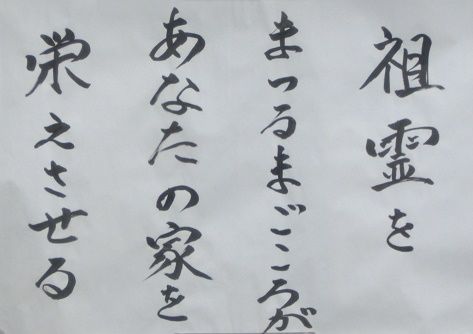 祖霊を
まつるまごころが
あなたの家を
栄えさせる